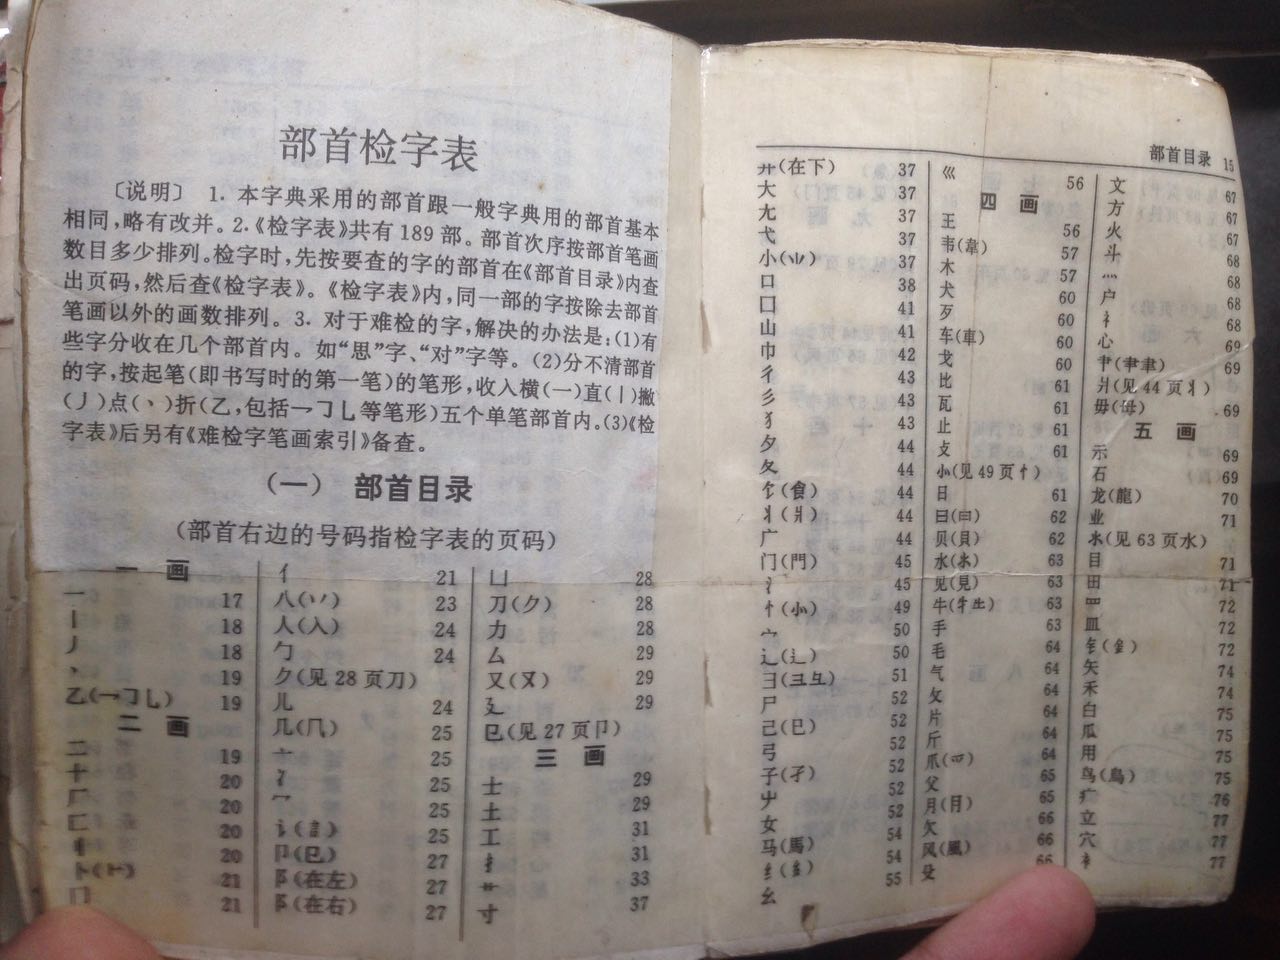 部首检字表
〔说明〕 1. 本字典采用的部首跟一般字典用的部首基本
相同,略有改并。2.《检字表》共有189部。部首次序按部首笔画
数目多少排列。检字时,先按要查的字的部首在《部首目录》内查
出页码,然后查《检字表》。《检字表》内,同一部的字按除去部首
笔画以外的画数排列。3. 对于难检的字,解决的办法是:(1)有
些字分收在几个部首内。如“思”字、“对”字等。(2)分不清部首
的字,按起笔(即书写时的第一笔)的笔形,收入横(一)直(丨)撇
(丿)点(丶)折(乙,包括乛㇆乚等笔形)五个单笔部首内。(3)《检
字表》后另有《难检字笔画索引》备查。
(一) 部首目录
(部首右边的号码指检字表的页码)
一 画
一 17
丨 18
丿 18
丶 19
乙(乛㇆乚) 19
二 画
二 19
十 20
厂 20
匚 20
刂 20
卜(⺊) 21
冂 21
亻 21
八(丷) 23
人(入) 24
勹 24
⺈(见28页刀)
儿 24
几(⺇) 25
亠 25
冫 25
冖 25
讠(訁) 25
卩(㔾) 27
阝(在左) 27
阝(在右) 27
凵 28
刀(⺈) 28
力 28
厶 29
又(ヌ) 29
廴 29
㔾(见27页卩)
三 画
士 29
土 29
工 31
扌 31
艹 33
寸 37
部首目录 15
廾(在下) 37
大 37
尢 37
弋 37
小(⺌) 37
口 38
囗 41
山 41
巾 42
彳 43
彡 43
犭 43
夕 44
夂 44
饣(飠) 44
丬(爿) 44
广 44
门(門) 45
氵 45
忄(㣺) 49
宀 50
辶(⻍) 50
彐(彑) 51
尸 52
己(巳) 52
弓 52
子(孑) 52
屮 52
女 52
马(馬) 54
纟(糹) 54
幺 55
巛 56
四 画
王 56
韦(韋) 57
木 57
犬 60
歹 60
车(車) 60
戈 60
比 61
瓦 61
止 61
攴 61
㣺(见49页忄)
日 61
曰(⺜) 62
贝(貝) 62
水(氺) 63
见(見) 63
牛(牜⺧) 63
手 63
毛 64
气 64
攵 64
片 64
斤 64
爪(爫) 64
父 65
月(⺝) 65
欠 66
风(風) 66
殳 66
文 67
方 67
火 67
斗 68
灬 68
户 68
礻 68
心 69
肀(⺻聿) 69
爿(见44页丬)
毋(母) 69
五 画
示 69
石 69
龙(龍) 70
业 71
氺(见63页水)
目 71
田 71
罒 72
皿 72
钅(釒) 72
矢 74
禾 74
白 75
瓜 75
用 75
鸟(鳥) 75
疒 76
立 77
穴 77
衤 77